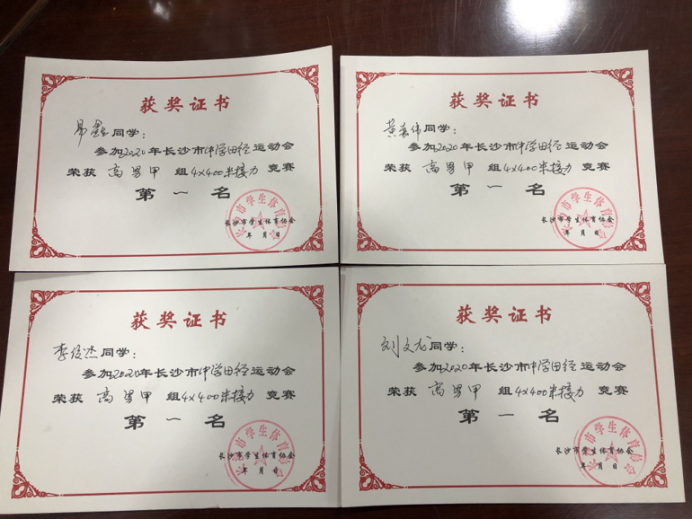 获奖证书
易鑫同学：
参加2020年长沙市中学田径运动会
荣获 高男甲 组4×400米接力 竞赛
第一名
长沙市学生体育协会
年 月 日
获奖证书
同学：
参加2020年长沙市中学田径运动会
荣获 高男甲 组4×400米接力 竞赛
第一名
长沙市学生体育协会
年 月 日
获奖证书
李俊杰同学：
参加2020年长沙市中学田径运动会
荣获 高男甲 组4×400米接力 竞赛
第一名
长沙市学生体育协会
年 月 日
获奖证书
刘文龙同学：
参加2020年长沙市中学田径运动会
荣获 高男甲 组4×400米接力 竞赛
第一名
长沙市学生体育协会
年 月 日